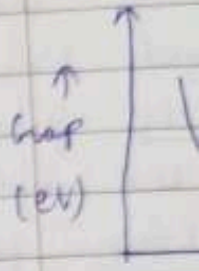 ↑
Gap
(eV)